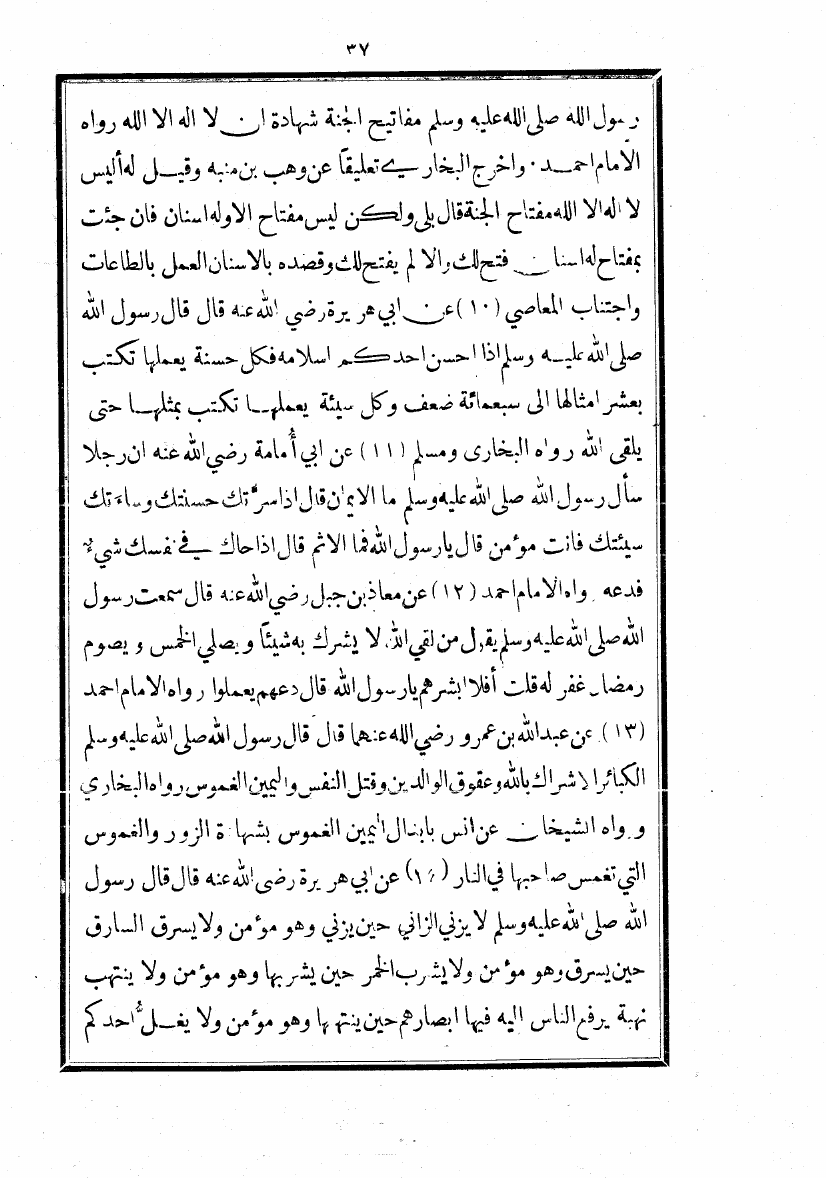 ٣٧
رسول الله صلى الله عليه وسلم مفاتيح الجنة شهادة ان لا اله الا الله رواه
الامام احمد · واخرج البخاري تعليقاً عن وهب بن منبه وقيل له أليس
لا اله الا الله مفتاح الجنة قال بلى ولكن ليس مفتاح الا وله اسنان فان جئت
بمفتاح له اسنان فتح لك والا لم يفتح لك وقصده بالاسنان العمل بالطاعات
واجتناب المعاصي (١٠) عن ابي هريرة رضي الله عنه قال قال رسول الله
صلى الله عليه وسلم اذا احسن احدكم اسلامه فكل حسنة يعملها تكتب
بعشر امثالها الى سبعمائة ضعف وكل سيئة يعملها تكتب بمثلها حتى
يلقى الله رواه البخارى ومسلم (١١) عن ابي أُمامة رضي الله عنه ان رجلا
سأل رسول الله صلى الله عليه وسلم ما الايمان قال اذا سرتك حسنتك وساءتك
سيئتك فانت مؤمن قال يا رسول الله فما الاثم قال اذا حاك في نفسك شيء
فدعه رواه الامام احمد (١٢) عن معاذ بن جبل رضي الله عنه قال سمعت رسول
الله صلى الله عليه وسلم يقول من لقي الله لا يشرك به شيئاً ويصلي الخمس و يصوم
رمضان غفر له قلت أفلا ابشرهم يا رسول الله قال دعهم يعملوا رواه الامام احمد
(١٣) عن عبد الله بن عمرو رضي الله عنهما قال قال رسول الله صلى الله عليه وسلم
الكبائر الاشراك بالله وعقوق الوالدين وقتل النفس واليمين الغموس رواه البخاري
ورواه الشيخان عن انس بابدال اليمين الغموس بشهادة الزور والغموس
التي تغمس صاحبها في النار (١٤) عن ابي هريرة رضى الله عنه قال قال رسول
الله صلى الله عليه وسلم لا يزني الزاني حين يزني وهو مؤمن ولا يسرق السارق
حين يسرق وهو مؤمن ولا يشرب الخمر حين يشربها وهو مؤمن ولا ينتهب
نهبة يرفع الناس اليه فيها ابصارهم حين ينتهبها وهو مؤمن ولا يغل احدكم